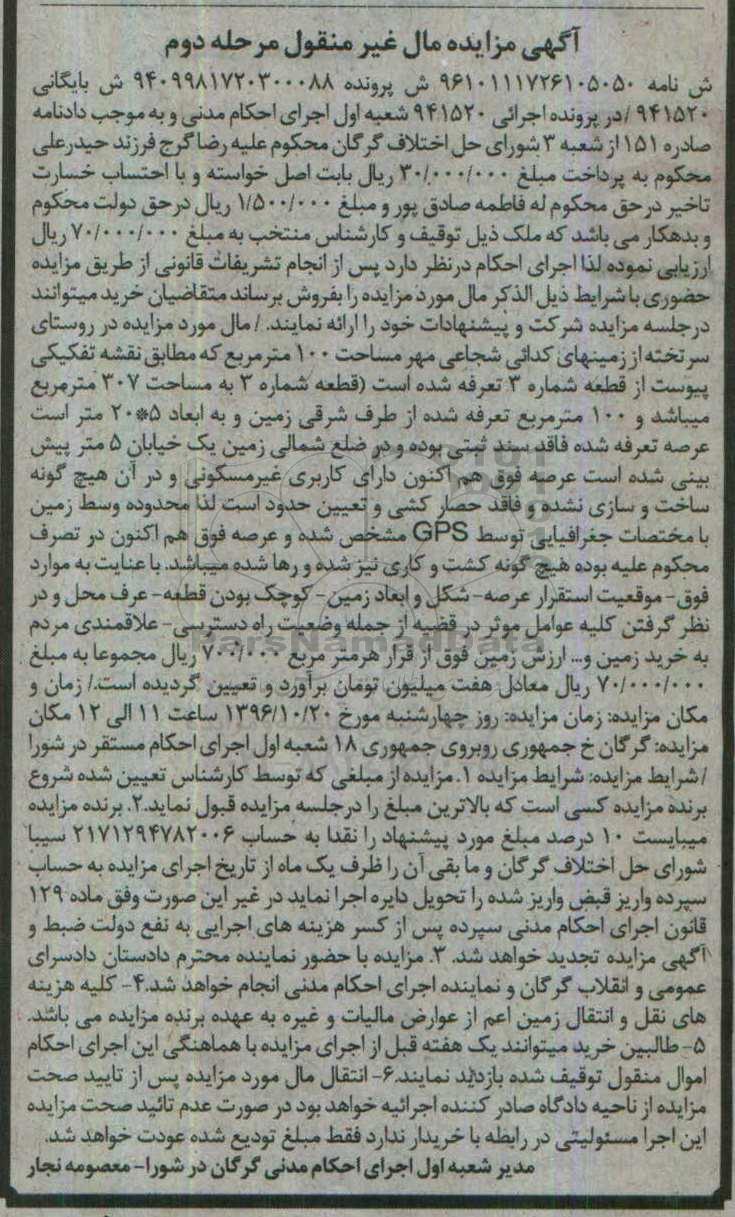 آگهی مزایده مال غیر منقول مرحله دوم
ش نامه ۹۶۱۰۱۱۱۷۲۶۱۰۵۰۵۰ ش پرونده ۹۴۰۹۹۸۱۷۲۰۳۰۰۰۸۸ ش بایگانی
۹۴۱۵۲۰ /در پرونده اجرائی ۹۴۱۵۲۰ شعبه اول اجرای احکام مدنی و به موجب دادنامه
صادره ۱۵۱ از شعبه ۳ شورای حل اختلاف گرگان محکوم علیه رضا گرج فرزند حیدرعلی
محکوم به پرداخت مبلغ ۳۰/۰۰۰/۰۰۰ ریال بابت اصل خواسته و با احتساب خسارت
تاخیر در حق محکوم له فاطمه صادق پور و مبلغ ۱/۵۰۰/۰۰۰ ریال درحق دولت محکوم
و بدهکار می باشد که ملک ذیل توقیف و کارشناس منتخب به مبلغ ۷۰/۰۰۰/۰۰۰ ریال
ارزیابی نموده لذا اجرای احکام درنظر دارد پس از انجام تشریفات قانونی از طریق مزایده
حضوری با شرایط ذیل الذکر مال مورد مزایده را بفروش برساند متقاضیان خرید میتوانند
درجلسه مزایده شرکت و پیشنهادات خود را ارائه نمایند. / مال مورد مزایده در روستای
سرتخته از زمینهای کدائی شجاعی مهر مساحت ۱۰۰ مترمربع که مطابق نقشه تفکیکی
پیوست از قطعه شماره ۳ تعرفه شده است (قطعه شماره ۳ به مساحت ۳۰۷ مترمربع
میباشد و ۱۰۰ مترمربع تعرفه شده از طرف شرقی زمین و به ابعاد ۵*۲۰ متر است
عرصه تعرفه شده فاقد سند ثبتی بوده و در ضلع شمالی زمین یک خیابان ۵ متر پیش
بینی شده است عرصه فوق هم اکنون دارای کاربری غیرمسکونی و در آن هیچ گونه
ساخت و سازی نشده و فاقد حصار کشی و تعیین حدود است لذا محدوده وسط زمین
با مختصات جغرافیایی توسط GPS مشخص شده و عرصه فوق هم اکنون در تصرف
محکوم علیه بوده هیچ گونه کشت و کاری نیز شده و رها شده میباشد. با عنایت به موارد
فوق- موقعیت استقرار عرصه- شکل و ابعاد زمین- کوچک بودن قطعه- عرف محل و در
نظر گرفتن کلیه عوامل موثر در قضیه از جمله وضعیت راه دسترسی- علاقمندی مردم
به خرید زمین و... ارزش زمین فوق از قرار هرمتر مربع ۷۰۰/۰۰۰ ریال مجموعا به مبلغ
۷۰/۰۰۰/۰۰۰ ریال معادل هفت میلیون تومان برآورد و تعیین گردیده است./ زمان و
مکان مزایده: زمان مزایده: روز چهارشنبه مورخ ۱۳۹۶/۱۰/۲۰ ساعت ۱۱ الی ۱۲ مکان
مزایده: گرگان خ جمهوری روبروی جمهوری ۱۸ شعبه اول اجرای احکام مستقر در شورا
/ شرایط مزایده: شرایط مزایده ۱. مزایده از مبلغی که توسط کارشناس تعیین شده شروع
برنده مزایده کسی است که بالاترین مبلغ را درجلسه مزایده قبول نماید.۲. برنده مزایده
میبایست ۱۰ درصد مبلغ مورد پیشنهاد را نقدا به حساب ۲۱۷۱۲۹۴۷۸۲۰۰۶ سیبا
شورای حل اختلاف گرگان و ما بقی آن را ظرف یک ماه از تاریخ اجرای مزایده به حساب
سپرده واریز قبض واریز شده را تحویل دایره اجرا نماید در غیر این صورت وفق ماده ۱۲۹
قانون اجرای احکام مدنی سپرده پس از کسر هزینه های اجرایی به نفع دولت ضبط و
آگهی مزایده تجدید خواهد شد. ۳. مزایده با حضور نماینده محترم دادستان دادسرای
عمومی و انقلاب گرگان و نماینده اجرای احکام مدنی انجام خواهد شد.۴- کلیه هزینه
های نقل و انتقال زمین اعم از عوارض مالیات و غیره به عهده برنده مزایده می باشد.
۵- طالبین خرید میتوانند یک هفته قبل از اجرای مزایده با هماهنگی این اجرای احکام
اموال منقول توقیف شده بازدید نمایند.۶- انتقال مال مورد مزایده پس از تایید صحت
مزایده از ناحیه دادگاه صادر کننده اجرائیه خواهد بود در صورت عدم تائید صحت مزایده
این اجرا مسئولیتی در رابطه با خریدار ندارد فقط مبلغ تودیع شده عودت خواهد شد.
مدیر شعبه اول اجرای احکام مدنی گرگان در شورا- معصومه نجار
ParsNamadData